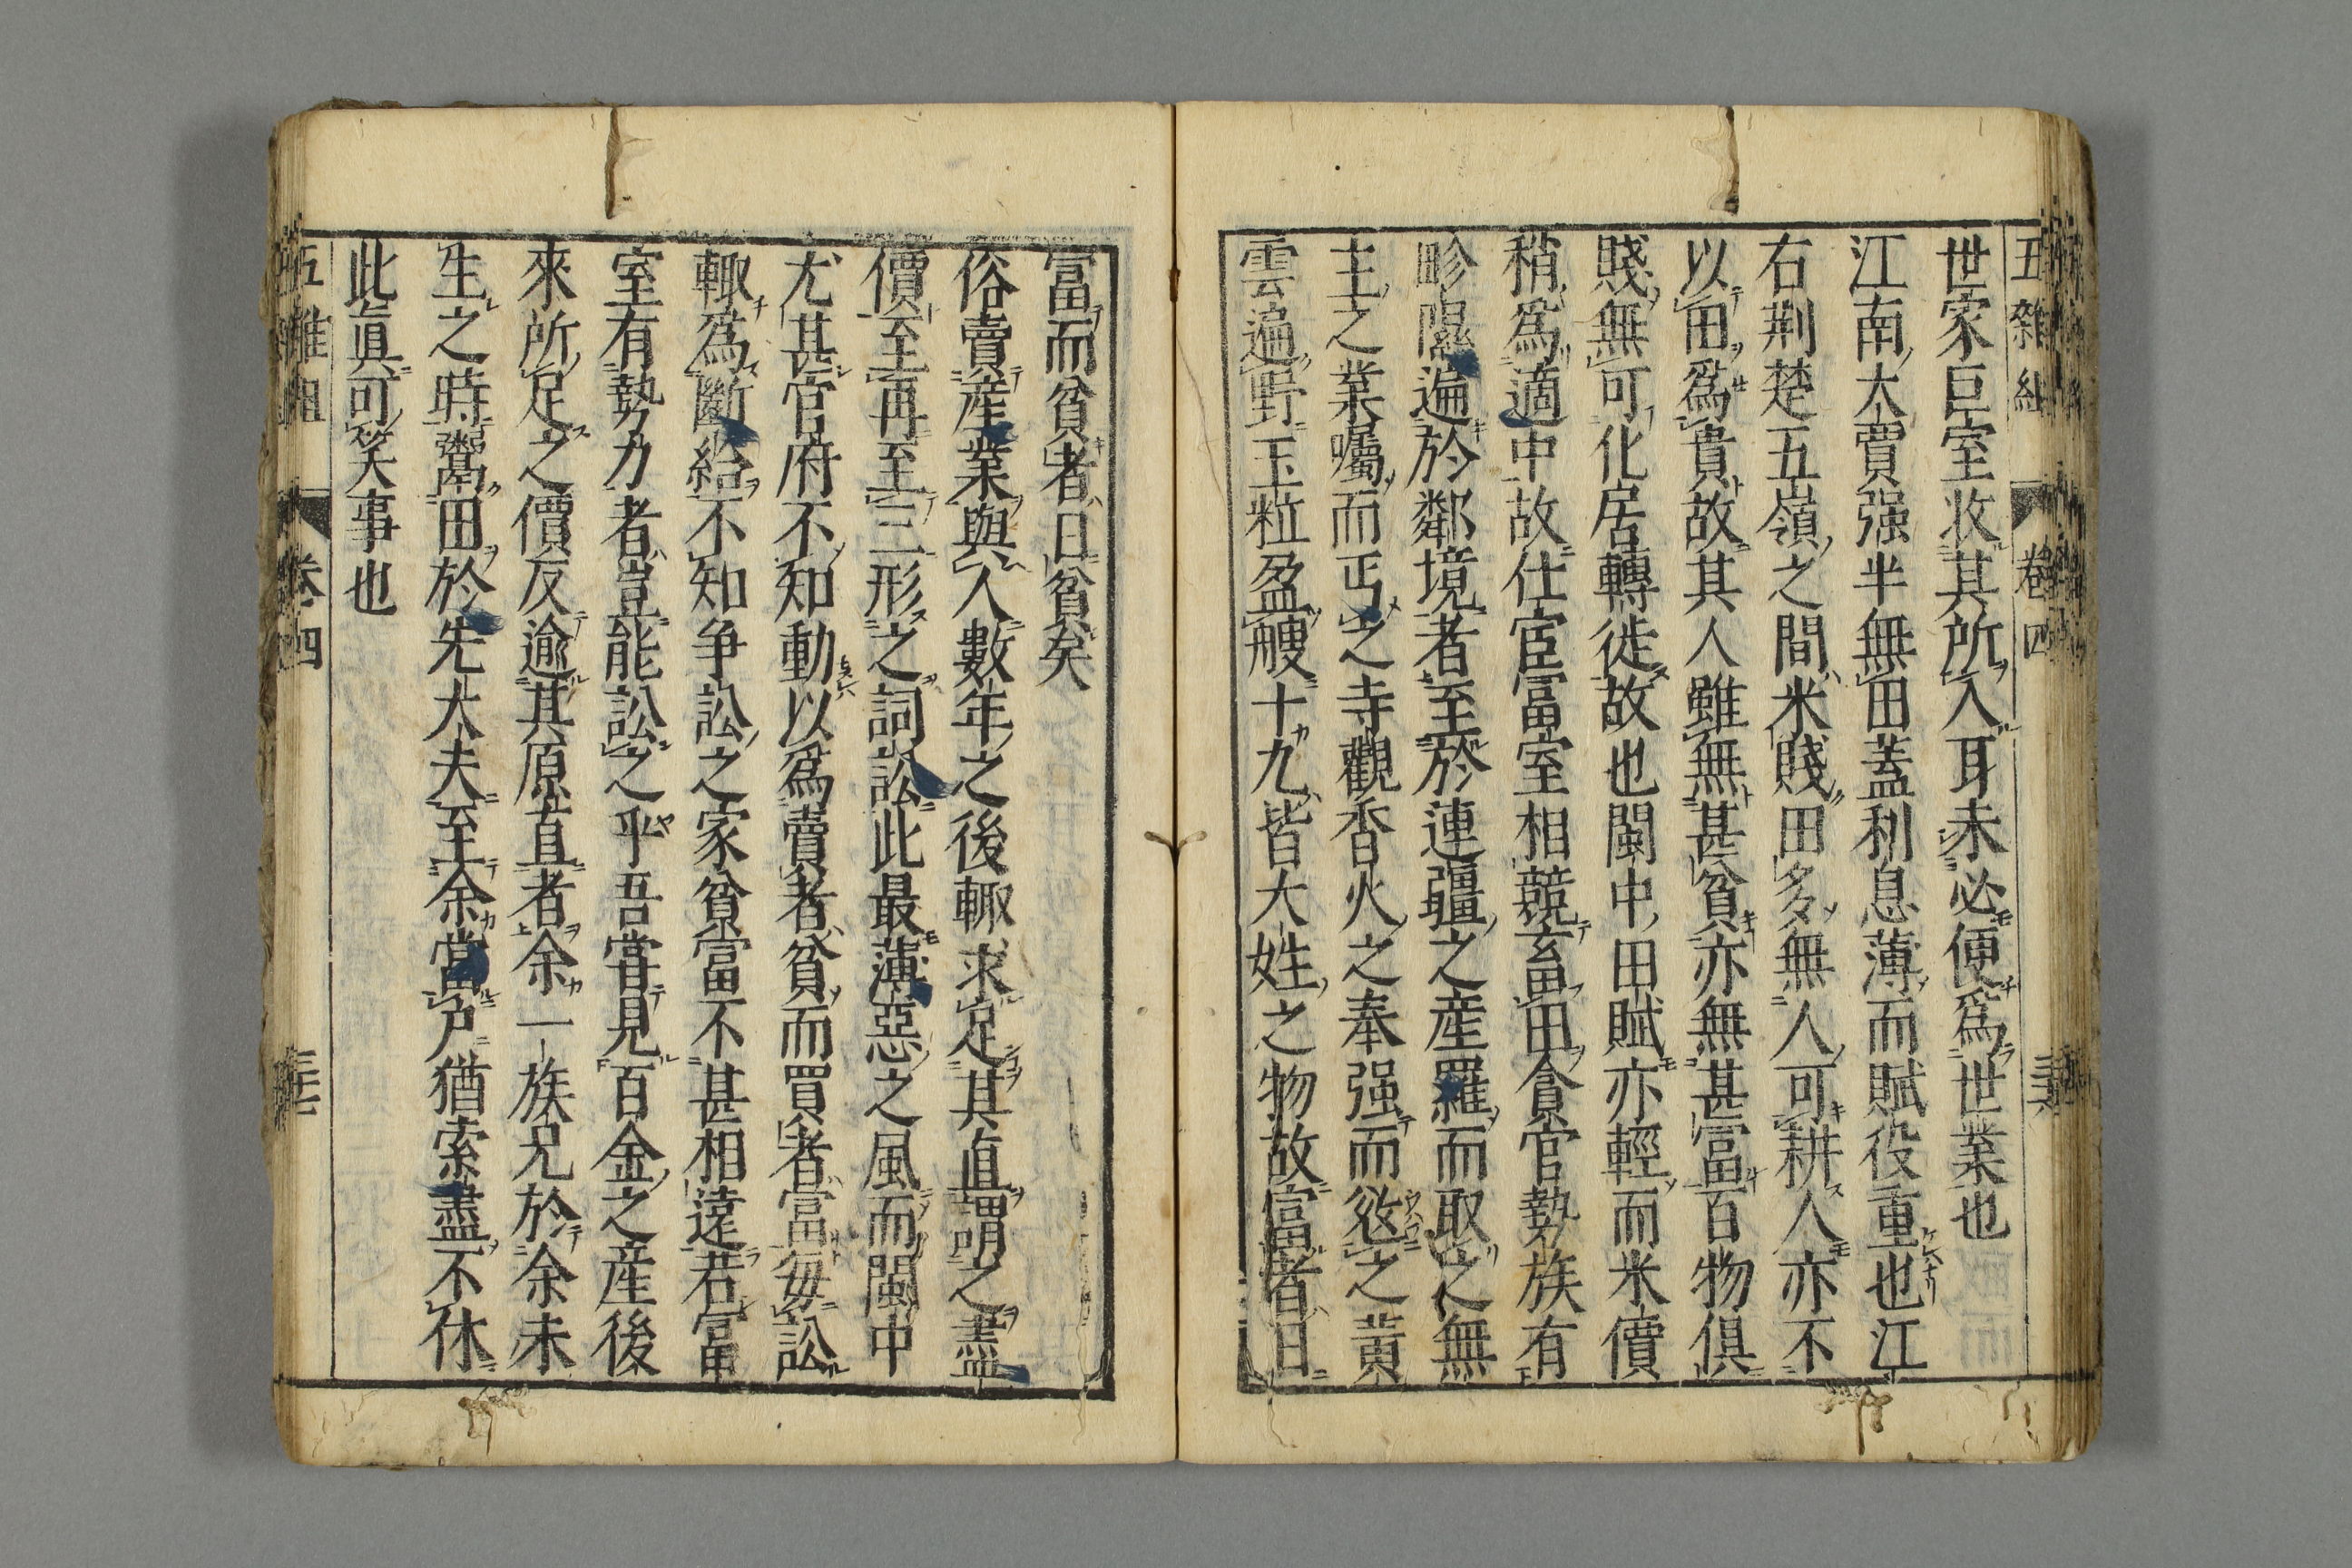 五雜組 卷四
世家巨室收其所入耳未必便爲世業也
江南大賈强半無田蓋利息薄而賦役重也江
右荆楚五嶺之間米賤田多無人可耕人亦不
以田爲貴故其人雖無甚貧亦無甚富百物俱
賤無可化居轉徙故也閩中田賦亦輕而米價
稍爲適中故仕宦富室相競畜田貪官勢族有
畛隰遍於鄰境者至於連疆之產羅而取之無
主之業囑而丐之寺觀香火之奉强而㐫之黃
雲遍野玉粒盈艘十九皆大姓之物故富者日
富而貧者日貧矣
俗賣產業與人數年之後輙求足其直謂之盡
價至再至三形之詞訟此最薄惡之風而閩中
尤甚官府不知動以爲賣者貧而買者富每訟
輙爲斷給不知争訟之家貧富不甚相遠若富
室有勢力者豈能訟之乎吾嘗見百金之產後
來所足之價反逾其原直者余一族兄於余未
生之時鬻田於先大夫至余當户猶索盡不休
此眞可笑事也
五雜組 卷四 三七